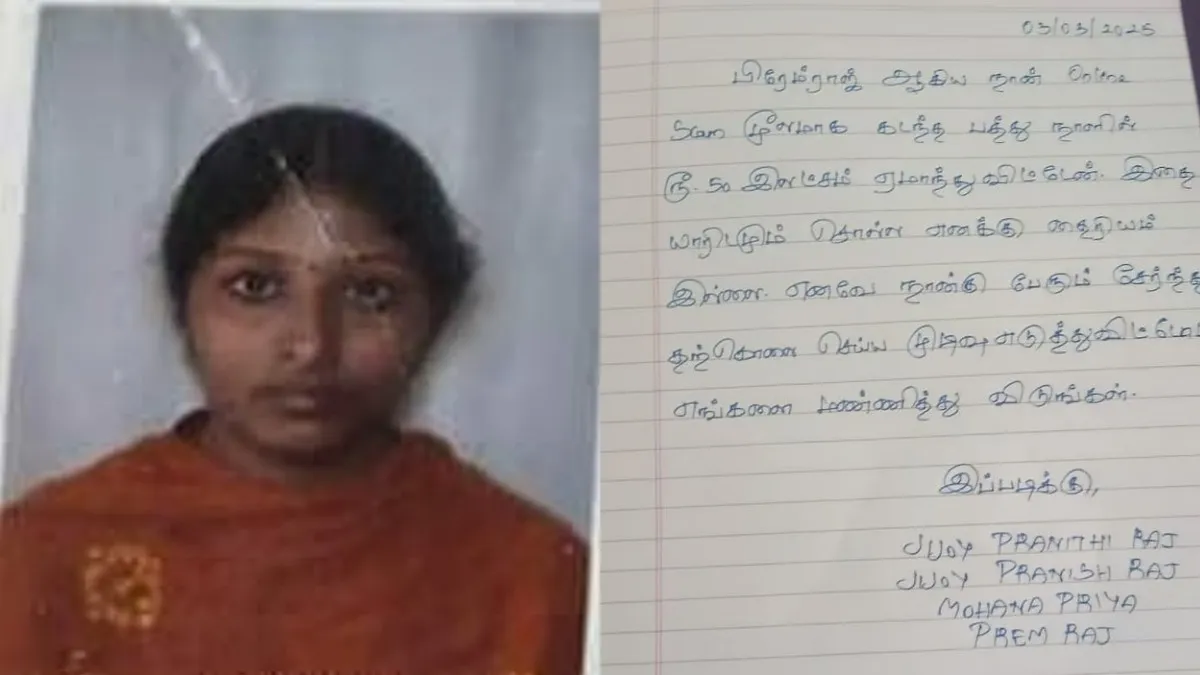 03/03/2025
பிரேம்ராஜ் ஆகிய நான் Online
Scam மூலமாக கடந்த பத்து நாளில்
ரூ. 50 இலட்சம் ஏமாந்து விட்டேன். இதை
யாரிடமும் சொல்ல எனக்கு தைரியம்
இல்லை. எனவே நான்கு பேரும் சேர்ந்து
தற்கொலை செய்ய முடிவு எடுத்துவிட்டோம்
எங்களை மன்னித்து விடுங்கள்.
இப்படிக்கு,
JUOY PRANITHI RAJ
JUOY PRANISH RAJ
MOHANA PRIYA
PREM RAJ